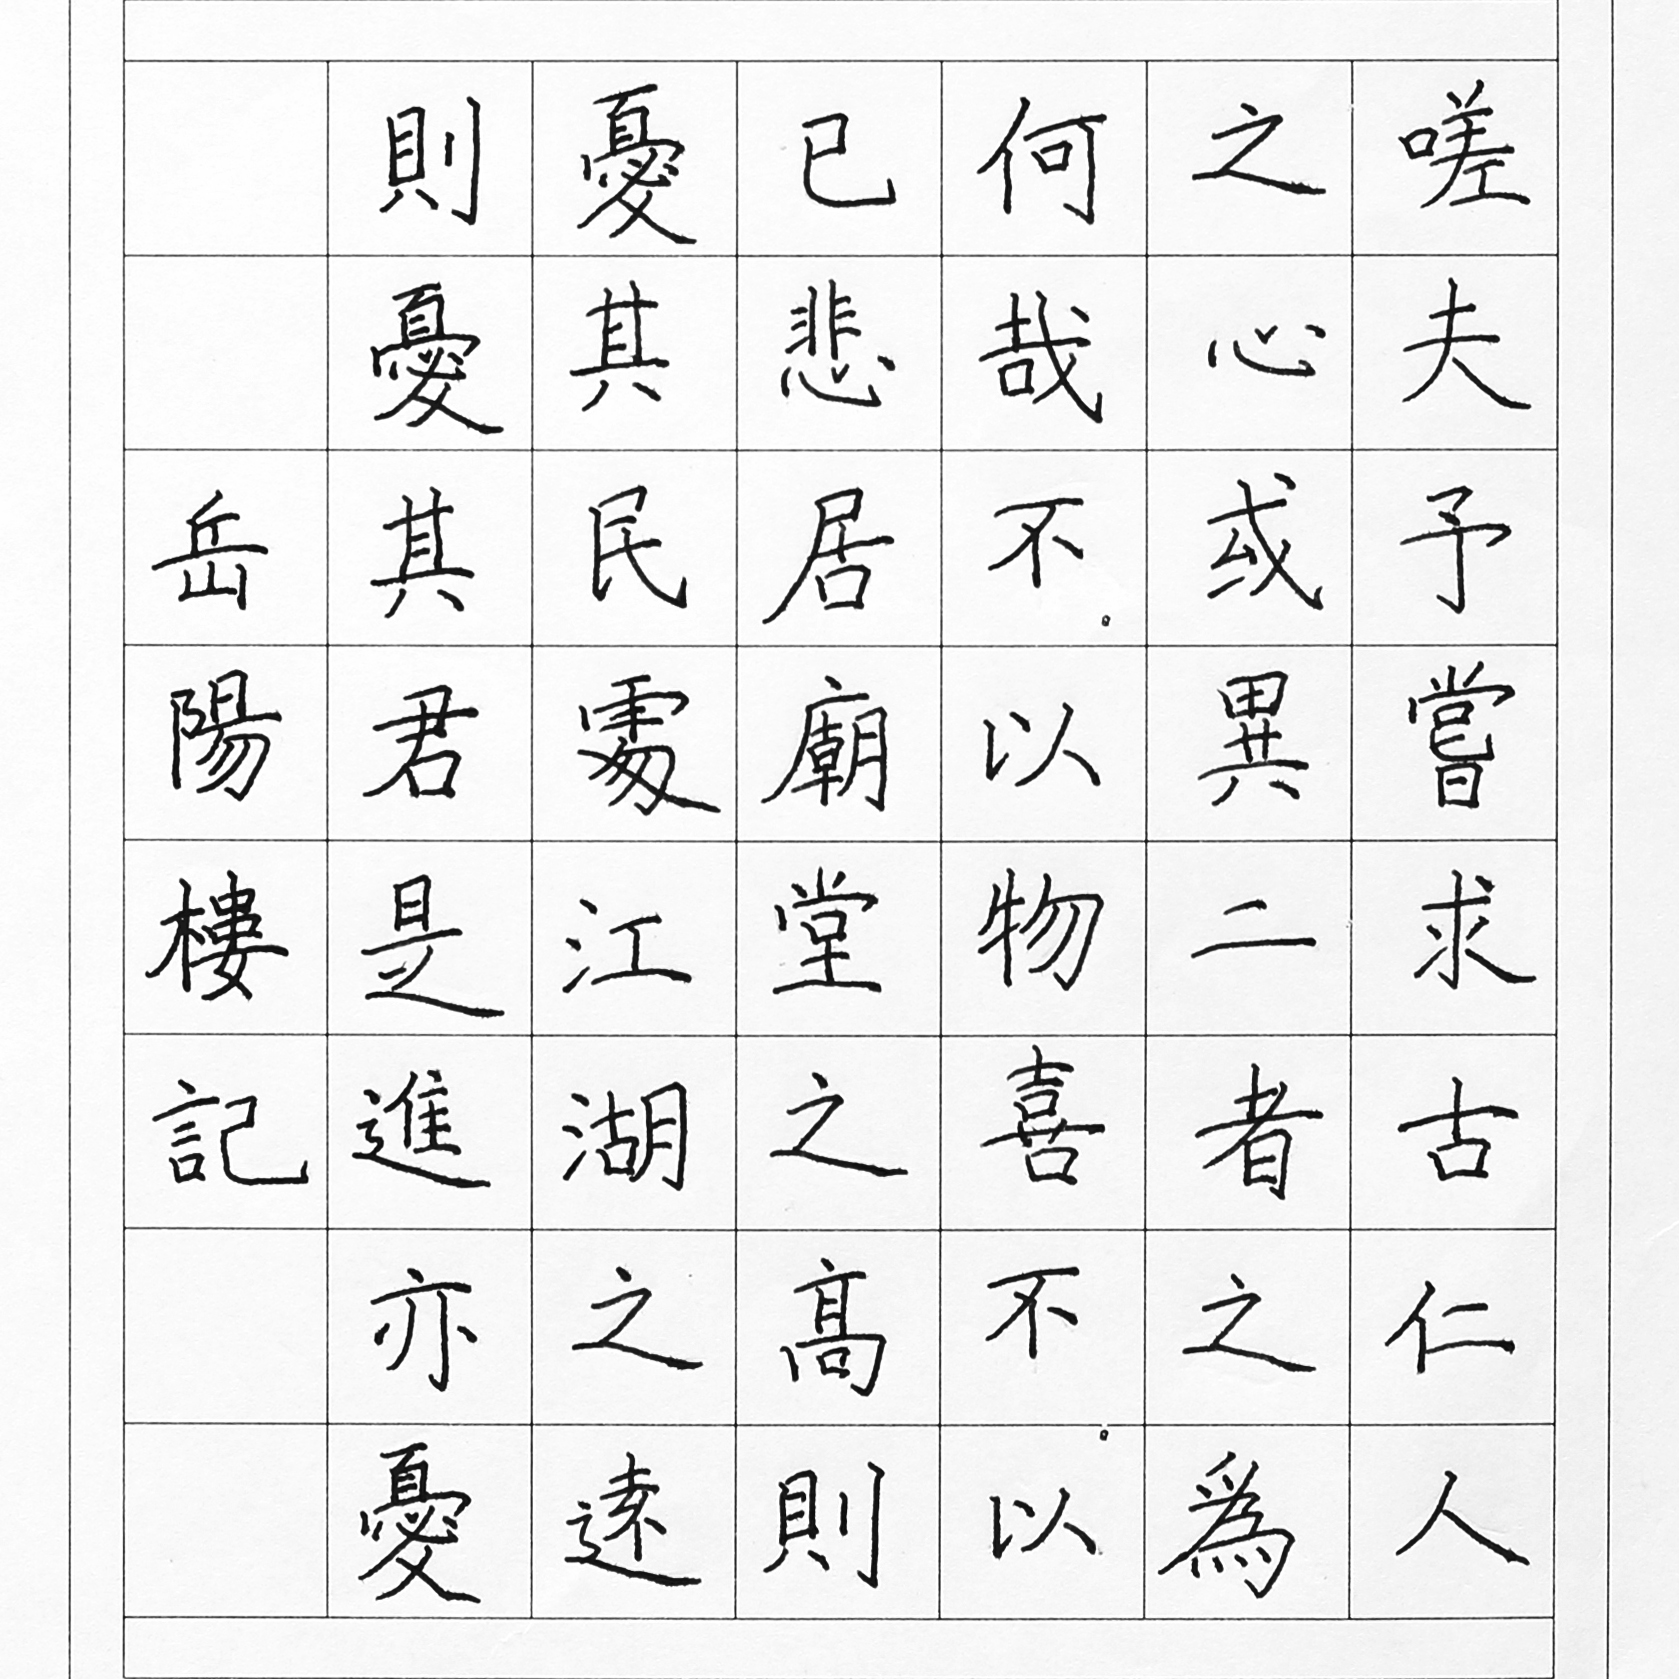 嗟夫予嘗求古仁人
之心或異二者之爲
何哉不以物喜不以
已悲居廟堂之高則
憂其民處江湖之遠
則憂其君是進亦憂
岳陽樓記